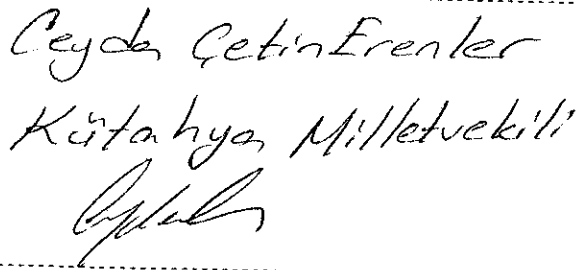 Ceyda Çetin Erenler
Kütahya Milletvekili